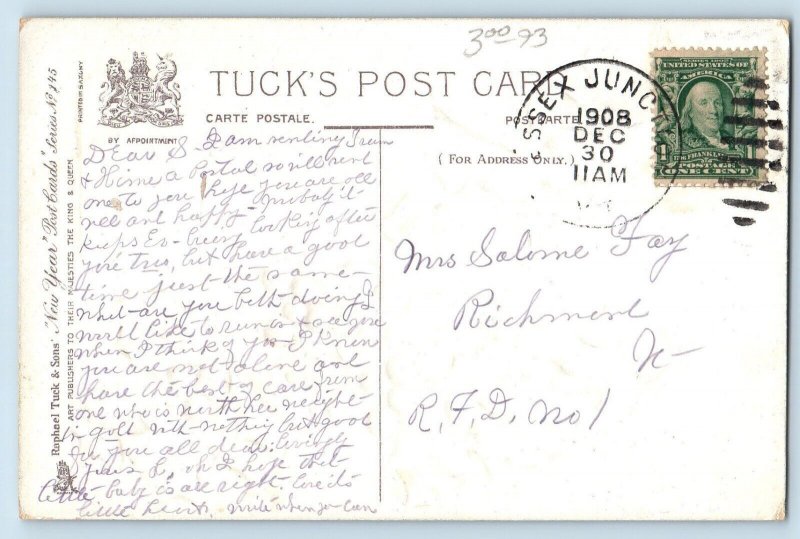 3.00 93
TUCK'S POST CARD
CARTE POSTALE. POSTKARTE
BY APPOINTMENT
(FOR ADDRESS ONLY.)
ESSEX JUNC
1908
DEC
30
11AM
SERIES 1902
UNITED STATES OF
AMERICA
FRANKLIN
POSTAGE
ONE CENT
PRINTED IN SAXONY
Raphael Tuck & Sons' "New Year" Post Cards" Series No 745
ART PUBLISHERS TO THEIR MAJESTIES THE KING & QUEEN
Dear S. I am sending
a Postal so will send
one to you hope you are all
well and happy. Probably it
keeps Ev busy looking after
you two, but have a good
time just the same-
what are you both doing I
would like to run & see you
when I think of you I know
you are not alone and
have the best of care from
one who is worth her weight
in gold with nothing but good
for you all dear lovingly
yours oh I hope that
little baby is all right
little heart. write when you can
Mrs Salome Fay
Richmond
Vt
R. F. D. No 1